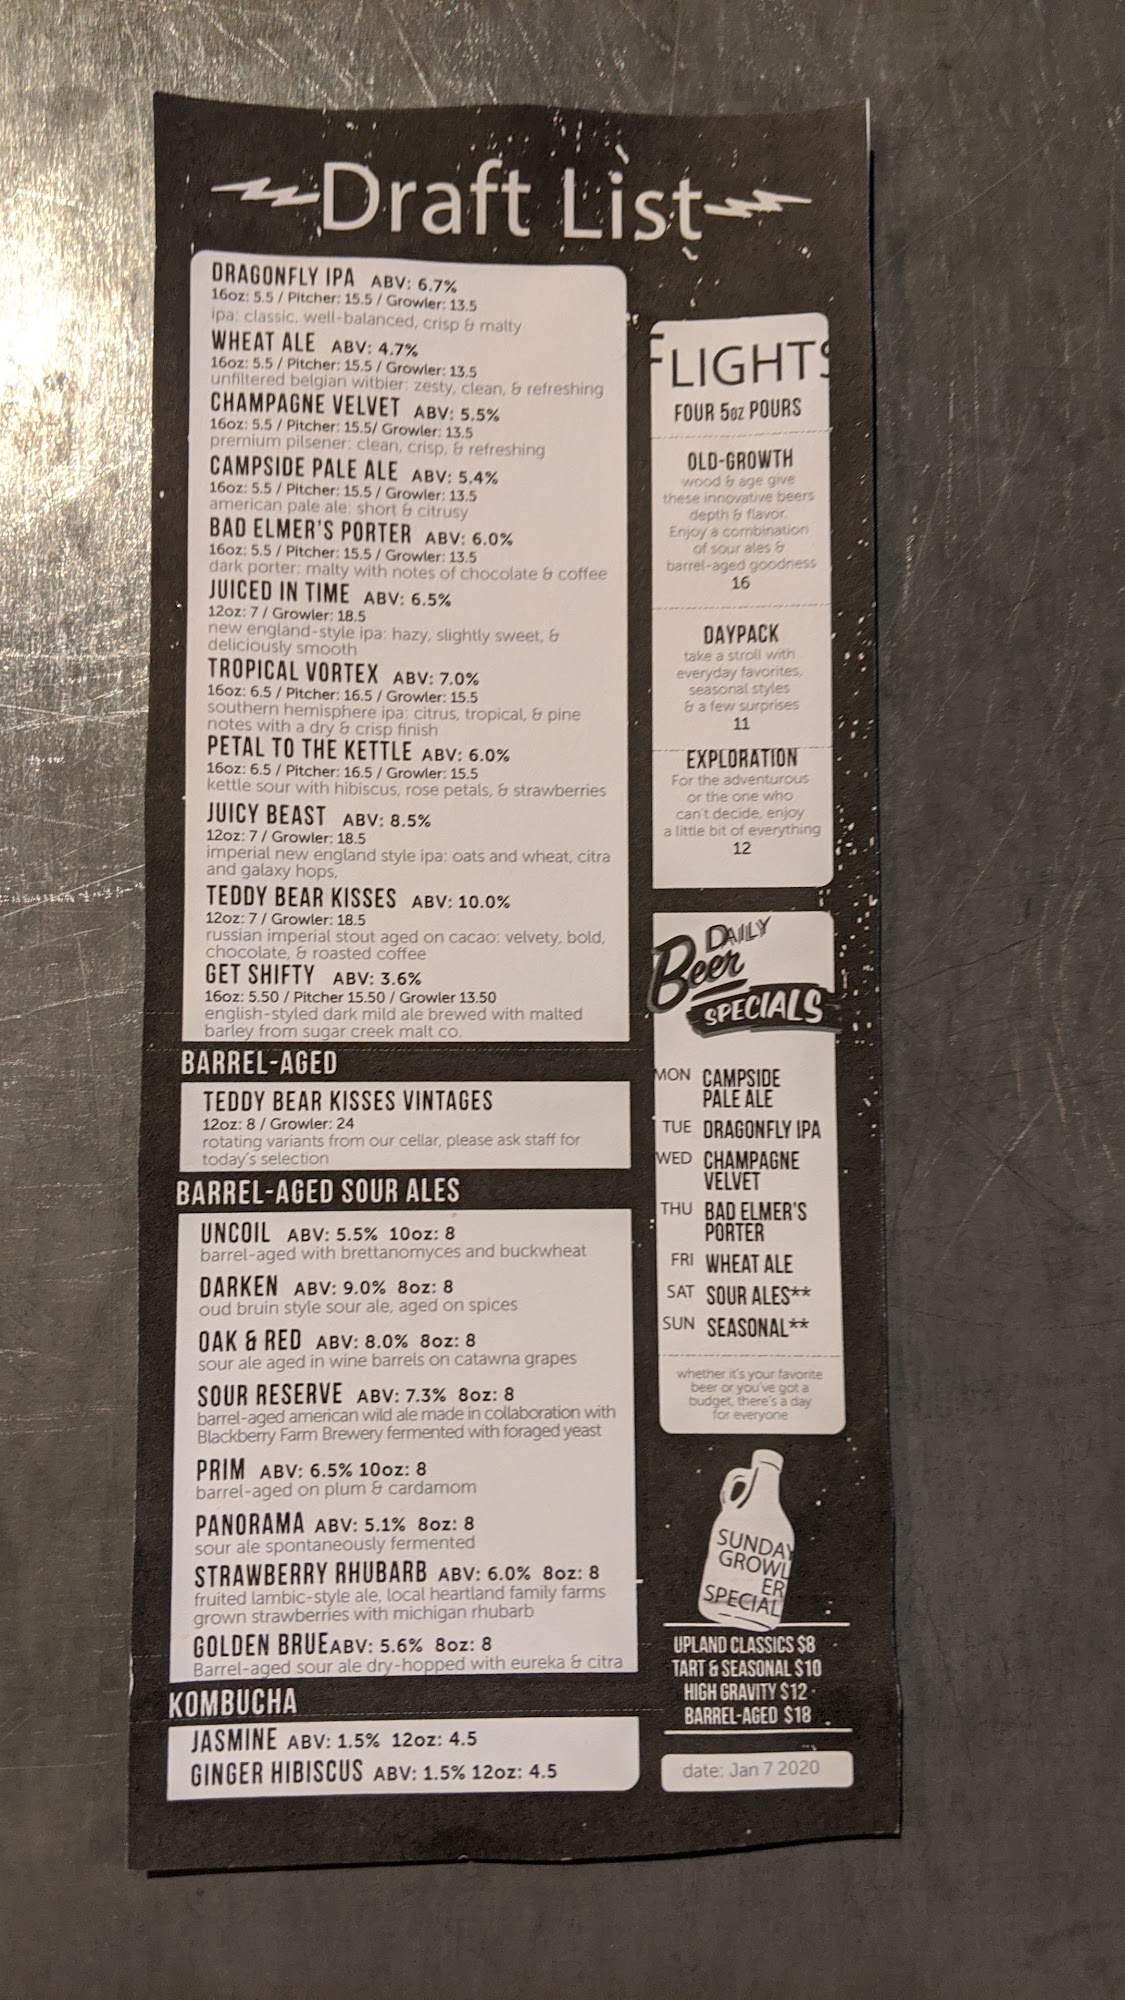 Draft List
DRAGONFLY IPA ABV: 6.7%
16oz: 5.5 / Pitcher: 15.5 / Growler: 13.5
ipa: classic, well-balanced, crisp & malty
WHEAT ALE ABV: 4.7%
16oz: 5.5 / Pitcher: 15.5 / Growler: 13.5
unfiltered belgian witbier: zesty, clean, & refreshing
CHAMPAGNE VELVET ABV: 5.5%
16oz: 5.5 / Pitcher: 15.5/ Growler: 13.5
premium pilsener: clean, crisp, & refreshing
CAMPSIDE PALE ALE ABV: 5.4%
16oz: 5.5 / Pitcher: 15.5 / Growler: 13.5
american pale ale: short & citrusy
BAD ELMER'S PORTER ABV: 6.0%
16oz: 5.5 / Pitcher: 15.5 / Growler: 13.5
dark porter: malty with notes of chocolate & coffee
JUICED IN TIME ABV: 6.5%
12oz: 7 / Growler: 18.5
new england-style ipa: hazy, slightly sweet, &
deliciously smooth
TROPICAL VORTEX ABV: 7.0%
16oz: 6.5 / Pitcher: 16.5 / Growler: 15.5
southern hemisphere ipa: citrus, tropical, & pine
notes with a dry & crisp finish
PETAL TO THE KETTLE ABV: 6.0%
16oz: 6.5 / Pitcher: 16.5 / Growler: 15.5
kettle sour with hibiscus, rose petals, & strawberries
JUICY BEAST ABV: 8.5%
12oz: 7 / Growler: 18.5
imperial new england style ipa: oats and wheat, citra
and galaxy hops,
TEDDY BEAR KISSES ABV: 10.0%
12oz: 7 / Growler: 18.5
russian imperial stout aged on cacao: velvety, bold,
chocolate, & roasted coffee
GET SHIFTY ABV: 3.6%
16oz: 5.50 / Pitcher 15.50 / Growler 13.50
english-styled dark mild ale brewed with malted
barley from sugar creek malt co.
BARREL-AGED
TEDDY BEAR KISSES VINTAGES
12oz: 8 / Growler: 24
rotating variants from our cellar, please ask staff for
today's selection
BARREL-AGED SOUR ALES
UNCOIL ABV: 5.5% 10oz: 8
barrel-aged with brettanomyces and buckwheat
DARKEN ABV: 9.0% 8oz: 8
oud bruin style sour ale, aged on spices
OAK & RED ABV: 8.0% 8oz: 8
sour ale aged in wine barrels on catawna grapes
SOUR RESERVE ABV: 7.3% 8oz: 8
barrel-aged american wild ale made in collaboration with
Blackberry Farm Brewery fermented with foraged yeast
PRIM ABV: 6.5% 10oz: 8
barrel-aged on plum & cardamom
PANORAMA ABV: 5.1% 8oz: 8
sour ale spontaneously fermented
STRAWBERRY RHUBARB ABV: 6.0% 8oz: 8
fruited lambic-style ale, local heartland family farms
grown strawberries with michigan rhubarb
GOLDEN BRUE ABV: 5.6% 8oz: 8
Barrel-aged sour ale dry-hopped with eureka & citra
KOMBUCHA
JASMINE ABV: 1.5% 12oz: 4.5
GINGER HIBISCUS ABV: 1.5% 12oz: 4.5
FLIGHTS
FOUR 5oz POURS
OLD-GROWTH
wood & age give
these innovative beers
depth & flavor.
Enjoy a combination
of sour ales &
barrel-aged goodness
16
DAYPACK
take a stroll with
everyday favorites,
seasonal styles
& a few surprises
11
EXPLORATION
For the adventurous
or the one who
can't decide, enjoy
a little bit of everything
12
DAILY
Beer
SPECIALS
MON CAMPSIDE
PALE ALE
TUE DRAGONFLY IPA
WED CHAMPAGNE
VELVET
THU BAD ELMER'S
PORTER
FRI WHEAT ALE
SAT SOUR ALES**
SUN SEASONAL**
whether it's your favorite
beer or you've got a
budget, there's a day
for everyone
SUNDAY
GROWL
ER
SPECIAL
UPLAND CLASSICS $8
TART & SEASONAL $10
HIGH GRAVITY $12
BARREL-AGED $18
date: Jan 7 2020